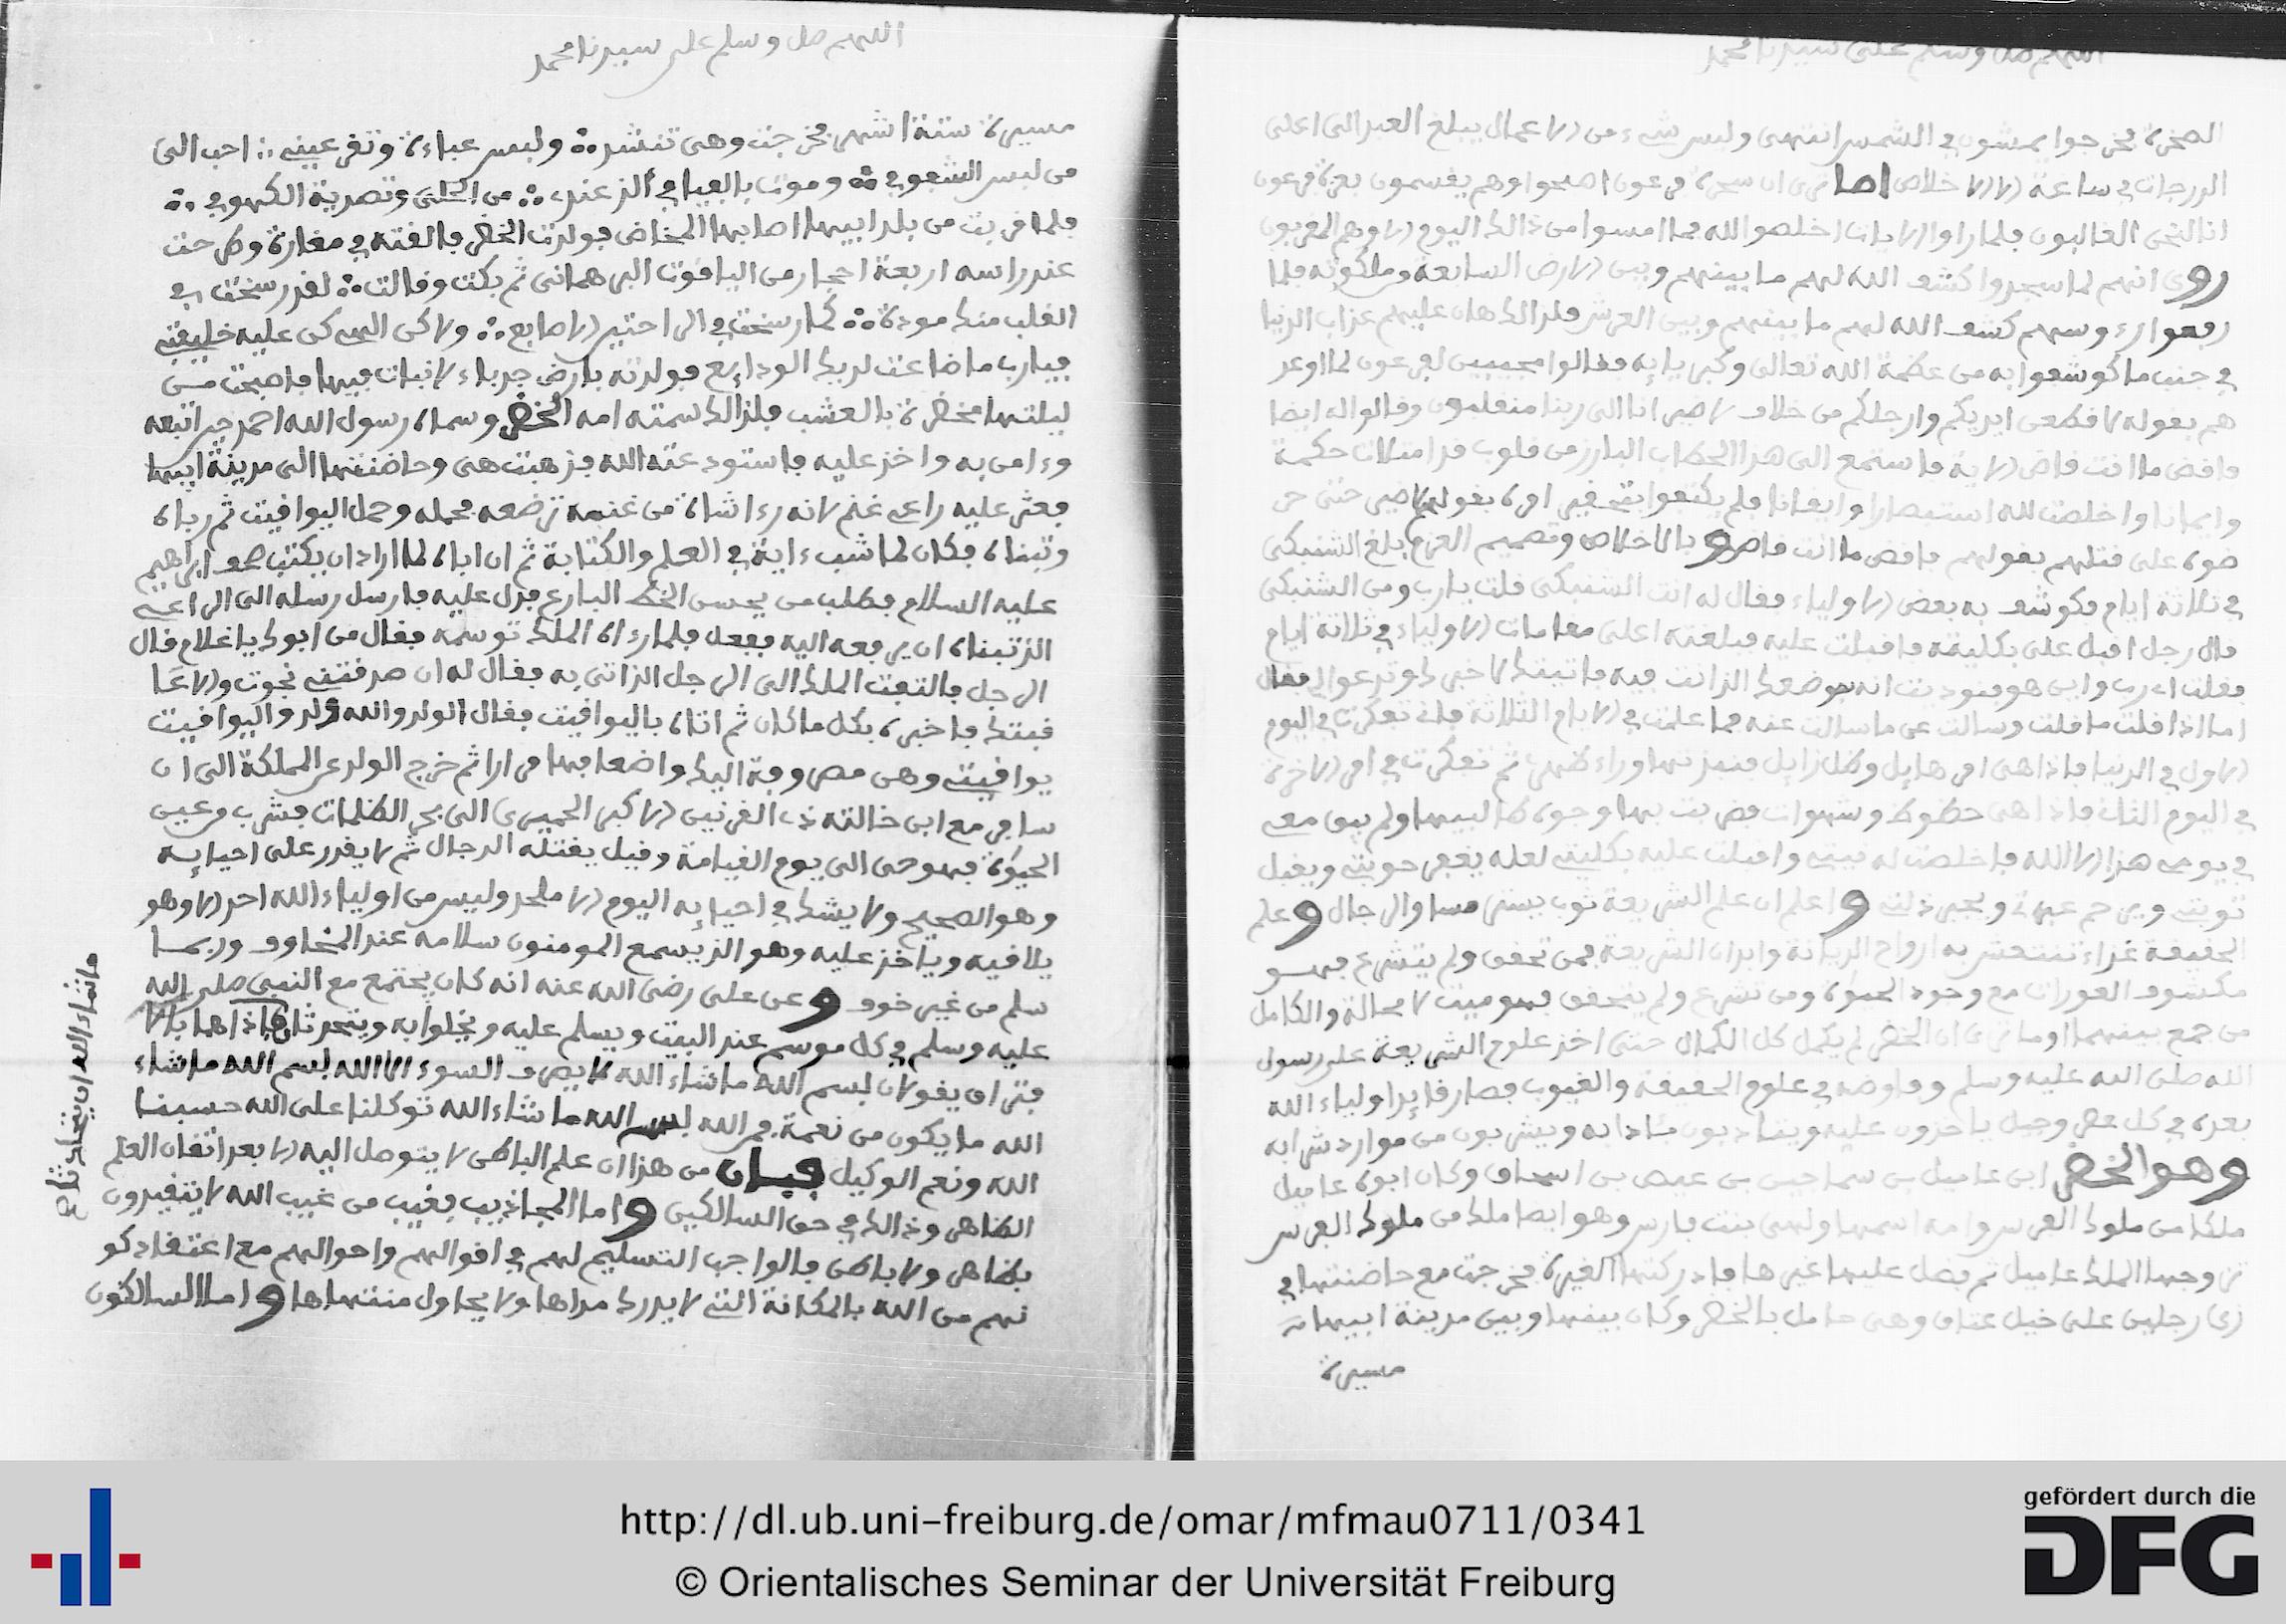 اللهم صل وسلم على سيدنا محمد
الصخرة فخرجوا يمشون في الشمس انتهى وليس شيء من الاعمال يبلغ العبد الى اعلى
الدرجات في ساعة الا الاخلاص اما ترى ان سحرة فرعون اصبحوا وهم يقسمون بعزة فرعون
انا لنحن الغالبون فلما راوا الايات اخلصوا لله فما امسوا من ذالك اليوم الا وهم المقربون
روي انهم لما سجدوا كشف الله لهم ما بينهم وبين الارض السابعة وملكوته فلما
رفعوا رءوسهم كشف الله لهم ما بينهم وبين العرش فلذالك هان عليهم عذاب الدنيا
في جنب ما كوشفوا به من عظمة الله تعالى وكبريايه فقالوا مجيبين لفرعون لما اوعد
هم بقوله لاقطعن ايديكم وارجلكم من خلاف لا ضير انا الى ربنا منقلبون وقالوا له ايضا
فاقض ما انت قاض الاية فاستمع الى هذا الخطاب البارز من قلوب قد امتلات حكمة
وايمانا واخلصت لله استبصارا وايقانا فلم يكتفوا بقولهم لا ضير حتى حر
ضوه على قتلهم بقولهم فاقض ما انت قاض وبالاخلاص وتصميم العزم بلغ الشنبكي
في ثلاثة ايام فكوشف به بعض الاولياء فقال له انت الشنبكي قلت يارب ومن الشنبكي
قال رجل اقبل علي بكليته فاقبلت عليه فبلغته اعلى مقامات الاولياء في ثلاثة ايام
فقلت اي رب واين هو فنوديت انه بموضعك الذي انت فيه فاتيتك لاخبرك وتدعو لي فقال
اما اذا قلت ما قلت وسالت عن ما سالت عنه فما علمت في الايام الثلاثة فاني تفكرت في اليوم
الاول في الدنيا فاذا هي امر هايل وظل زايل فنبذتها وراء ظهري ثم تفكرت في امر الاخرة
في اليوم الثان فاذا هي حظوظ وشهوات فضربت بها وجوه طالبيها ولم يبق معي
في يومي هذا الا الله فاخلصت له نيتي واقبلت عليه بكليتي لعله يغفر حوبتي ويقبل
توبتي ويرحم عبرتي ويجبر ذلتي واعلم ان علم الشريعة ثوب يستر مساوي الرجال وعلم
الحقيقة غذاء تنتعش به ارواح الديانة وابدان الشريعة فمن تحقق ولم يتشرع فهو
مكشوف العورات مع وجود الحيوة ومن تشرع ولم يتحقق فهو ميت لا محالة والكامل
من جمع بينهما اوما ترى ان الخضر لم يكمل كل الكمال حتى اخذ علوم الشريعة على رسول
الله صلى الله عليه وسلم وفاوضه في علوم الحقيقة والغيوب فصار قايدا اولياء الله
بعده في كل عصر وجيل ياخذون عليه ويتادبون بئادابه ويشربون من موارد شرابه
وهو الخضر ابن عاميل بن سماجين بن عيص بن اسحاق وكان ابوه عاميل
ملكا من ملوك الفرس وامه اسمها ولهى بنت فارس وهو ايضا ملك من ملوك الفرس
تزوجها الملك عاميل ثم فضل عليها غيرها فادركتها الغيرة فخرجت مع حاضنتها في
زي رجلين على خيل عتاق وهي حامل بالخضر وكان بينها وبين مدينة ابيها
مسيرة
اللهم صل وسلم على سيدنا محمد
مسيرة ستة اشهر فخرجت وهي تنشد ولبس عباءة وتقر عيني احب الي
من لبس الشفوف وموت بالفيافي ألذ عندي من الحلى وتصدية الكهوف
فلما قربت من بلد ابيها اصابها المخاض فولدت الخضر فالقته في مغارة وطرحت
عند راسه اربعة احجار من الياقوت البهرماني ثم بكت وقالت لقد رسخت في
القلب منك مودة كما رسخت في الراحتين الاصابع ولاكن الهي كن عليه خليفتي
فيارب ما ضاعت لديك الودايع فولدته بارض جرداء لا نبات فيها فاصبحت من
ليلتها مخضرة بالعشب فلذالك سمته امه الخضر وسماه رسول الله احمد حين اتبعه
وءامن به واخذ عليه فاستودعته الله فذهبت هي وحاضنتها الى مدينة ابيها
فعثر عليه راعي غنم لانه رءا شاة من غنمه ترضعه فحمله وحمل اليواقيت ثم رباه
وتبناه فكان لما شب ءاية في العلم والكتابة ثم ان اباه لما اراد ان يكتب صحف ابراهيم
عليه السلام فطلب من يحسن الخط البارع فدل عليه فارسل رسله الى الراعي
الذي تبناه ان يرفعه اليه ففعل فلما رءاه الملك توسمه فقال من ابوك يا غلام قال
الرجل فالتفت الملك الى الرجل الذي اتى به فقال له ان صدقتني نجوت والا
قتلتك فاخبره بكل ما كان ثم اتاه باليواقيت فقال الولد والله ولدي واليواقيت
يواقيتي وهي مصروفة اليك واضعافها مرارا ثم خرج الولد عن المملكة الى ان
سافر مع ابن خالته ذي القرنين الاكبر الحميري الى بحر الظلمات فشرب من عين
الحيوة فهو حي الى يوم القيامة وقيل يقتله الدجال ثم لا يقدر على احيايه
وهو الصحيح ولا يشك في احيايه اليوم الا ملحد وليس من اولياء الله احد الا وهو
يلاقيه وياخذ عليه وهو الذي يسمع المومنون سلامه عند المخاوف وربما
سلم من غير خوف وعن علي رضي الله عنه انه كان يجتمع مع النبي صلى الله
عليه وسلم في كل موسم عند البيت ويسلم عليه ويخلوا به ويتحدثان فاذا هما بالا
فتراق يقولان بسم الله ما شاء الله لا يصرف السوء الا الله بسم الله ما شاء
الله ما يكون من نعمة فمن الله بسم الله ما شاء الله توكلنا على الله حسبنا
الله ونعم الوكيل فبان من هذا ان علم الباطن لا يتوصل اليه الا بعد اتقان العلم
الظاهر وذالك في حق السالكين واما المجاذيب فغيب من غيب الله لا يتقيدون
بظاهر ولا باطن فالواجب التسليم لهم في اقوالهم واحوالهم مع اعتقاد كو
نهم من الله بالمكانة التي لا يدرك مداها ولا يحاول منتهاها واما السالكون
ماشاء الله ان يتحادثاه
http://dl.ub.uni-freiburg.de/omar/mfmau0711/0341
© Orientalisches Seminar der Universität Freiburg
gefördert durch die
DFG